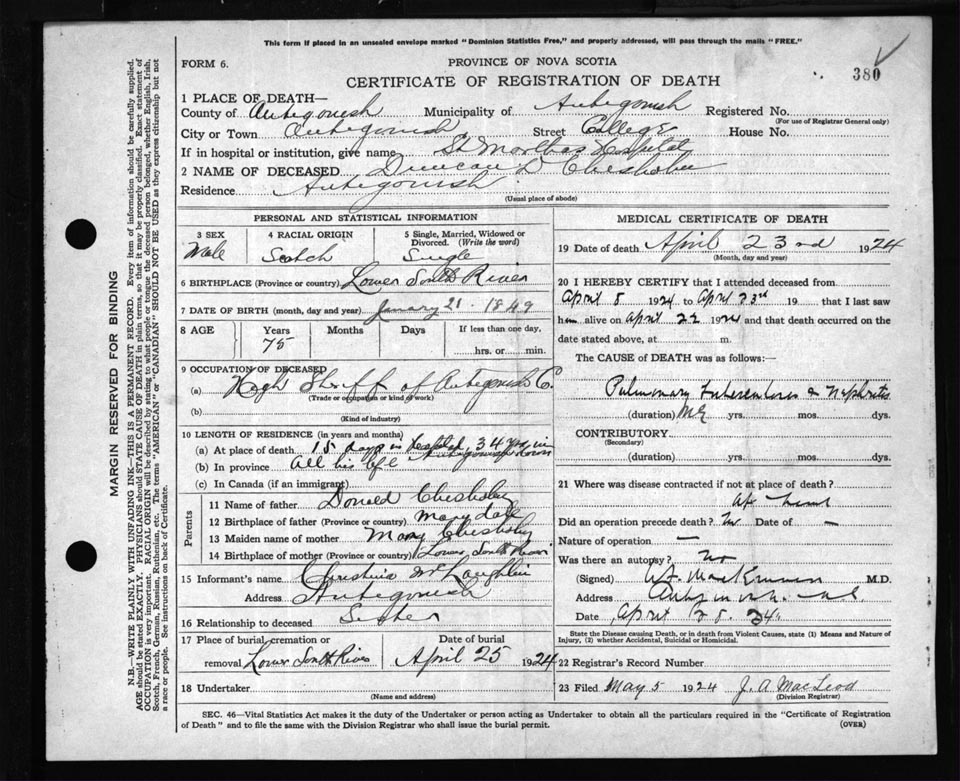 This form if placed in an unsealed envelope marked "Dominion Statistics Free," and properly addressed, will pass through the mails "FREE."
FORM 6.
PROVINCE OF NOVA SCOTIA
380
CERTIFICATE OF REGISTRATION OF DEATH
1 PLACE OF DEATH—
County of Antigonish Municipality of Antigonish Registered No.
(For use of Registrar General only)
City or Town Antigonish Street College House No.
If in hospital or institution, give name St Marthas Hospital
2 NAME OF DECEASED Duncan D Chisholm
Residence Antigonish
(Usual place of abode)
PERSONAL AND STATISTICAL INFORMATION
3 SEX 4 RACIAL ORIGIN 5 Single, Married, Widowed or Divorced. (Write the word)
Male Scotch Single
6 BIRTHPLACE (Province or country) Lower South River
7 DATE OF BIRTH (month, day and year) January 21 - 1849
8 AGE Years Months Days If less than one day,
75
hrs. or min.
9 OCCUPATION OF DECEASED
(a) High Sheriff of Antigonish C.
(Trade or occupation or kind of work)
(b)
(Kind of industry)
10 LENGTH OF RESIDENCE (in years and months)
(a) At place of death 15 days in Hospital, 34 yrs in Antigonish Town
(b) In province all his life
(c) In Canada (if an immigrant)
Parents
11 Name of father Donald Chisholm
12 Birthplace of father (Province or country) Marydale
13 Maiden name of mother Mary Chisholm
14 Birthplace of mother (Province or country) Lower South River
15 Informant's name Christina McLaughlin
Address Antigonish
16 Relationship to deceased Sister
17 Place of burial, cremation or removal Lower South River
Date of burial
April 25 1924
18 Undertaker
(Name and address)
MEDICAL CERTIFICATE OF DEATH
19 Date of death April 23nd 1924
(Month, day and year)
20 I HEREBY CERTIFY that I attended deceased from
April 8 1924 to April 23rd 19 that I last saw
him alive on April 22 1924 and that death occurred on the
date stated above, at m.
The CAUSE of DEATH was as follows:
Pulmonary Tuberculosis & Nephritis
(duration) yrs. mos. dys.
CONTRIBUTORY
(Secondary)
(duration) yrs. mos. dys.
21 Where was disease contracted if not at place of death?
At home
Did an operation precede death? No Date of —
Nature of operation —
Was there an autopsy? No
(Signed) W.F. MacKinnon M.D.
Address Antigonish N.S.
Date April 28. 24.
State the Disease causing Death, or in death from Violent Causes, state (1) Means and Nature of Injury, (2) whether Accidental, Suicidal or Homicidal.
22 Registrar's Record Number
23 Filed May 5 1924 J. A. MacLeod
(Division Registrar)
SEC. 46—Vital Statistics Act makes it the duty of the Undertaker or person acting as Undertaker to obtain all the particulars required in the "Certificate of Registration
of Death" and to file the same with the Division Registrar who shall issue the burial permit.
(OVER)
MARGIN RESERVED FOR BINDING
N.B.—WRITE PLAINLY WITH UNFADING INK—THIS IS A PERMANENT RECORD. Every item of information should be carefully supplied.
AGE should be stated EXACTLY. PHYSICIANS should STATE CAUSE OF DEATH in plain terms, so that it may be properly classified. Exact statement of
OCCUPATION is very important. RACIAL ORIGIN will be described by stating to what people or tongue the deceased person belonged, whether English, Irish,
Scotch, French, German, Russian, Ruthenian, etc. The terms "AMERICAN" or "CANADIAN" SHOULD NOT BE USED as they express citizenship but not
a race or people. See instructions on back of Certificate.